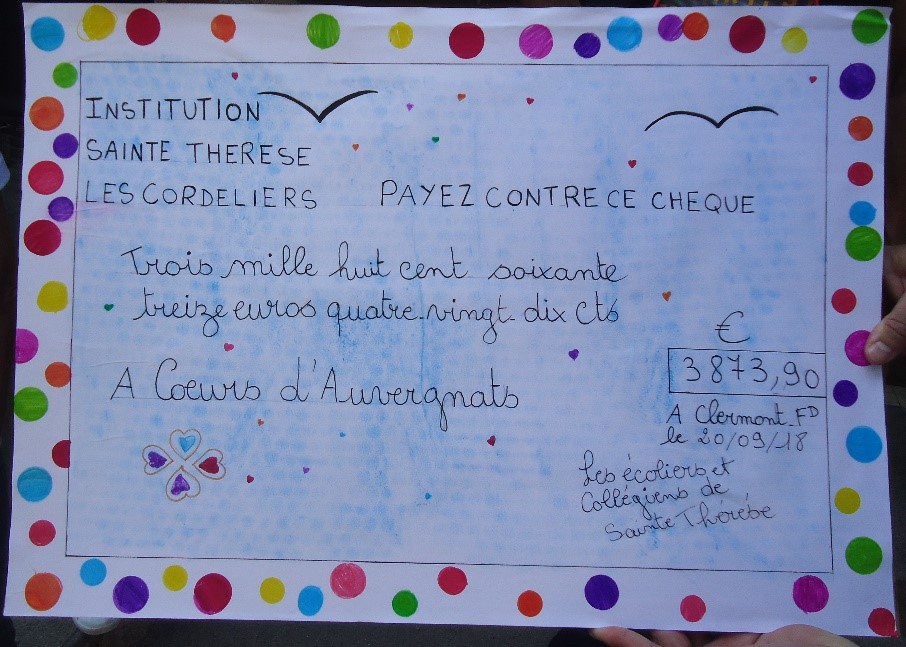 INSTITUTION
SAINTE THERESE
LES CORDELIERS PAYEZ CONTRE CE CHEQUE
Trois mille huit cent soixante
treize euros quatre vingt-dix cts
€
3873,90
A Coeurs d'Auvergnats
A Clermont-FD
le 20/09/18
Les écoliers et
Collégiens de
Sainte Thérèse